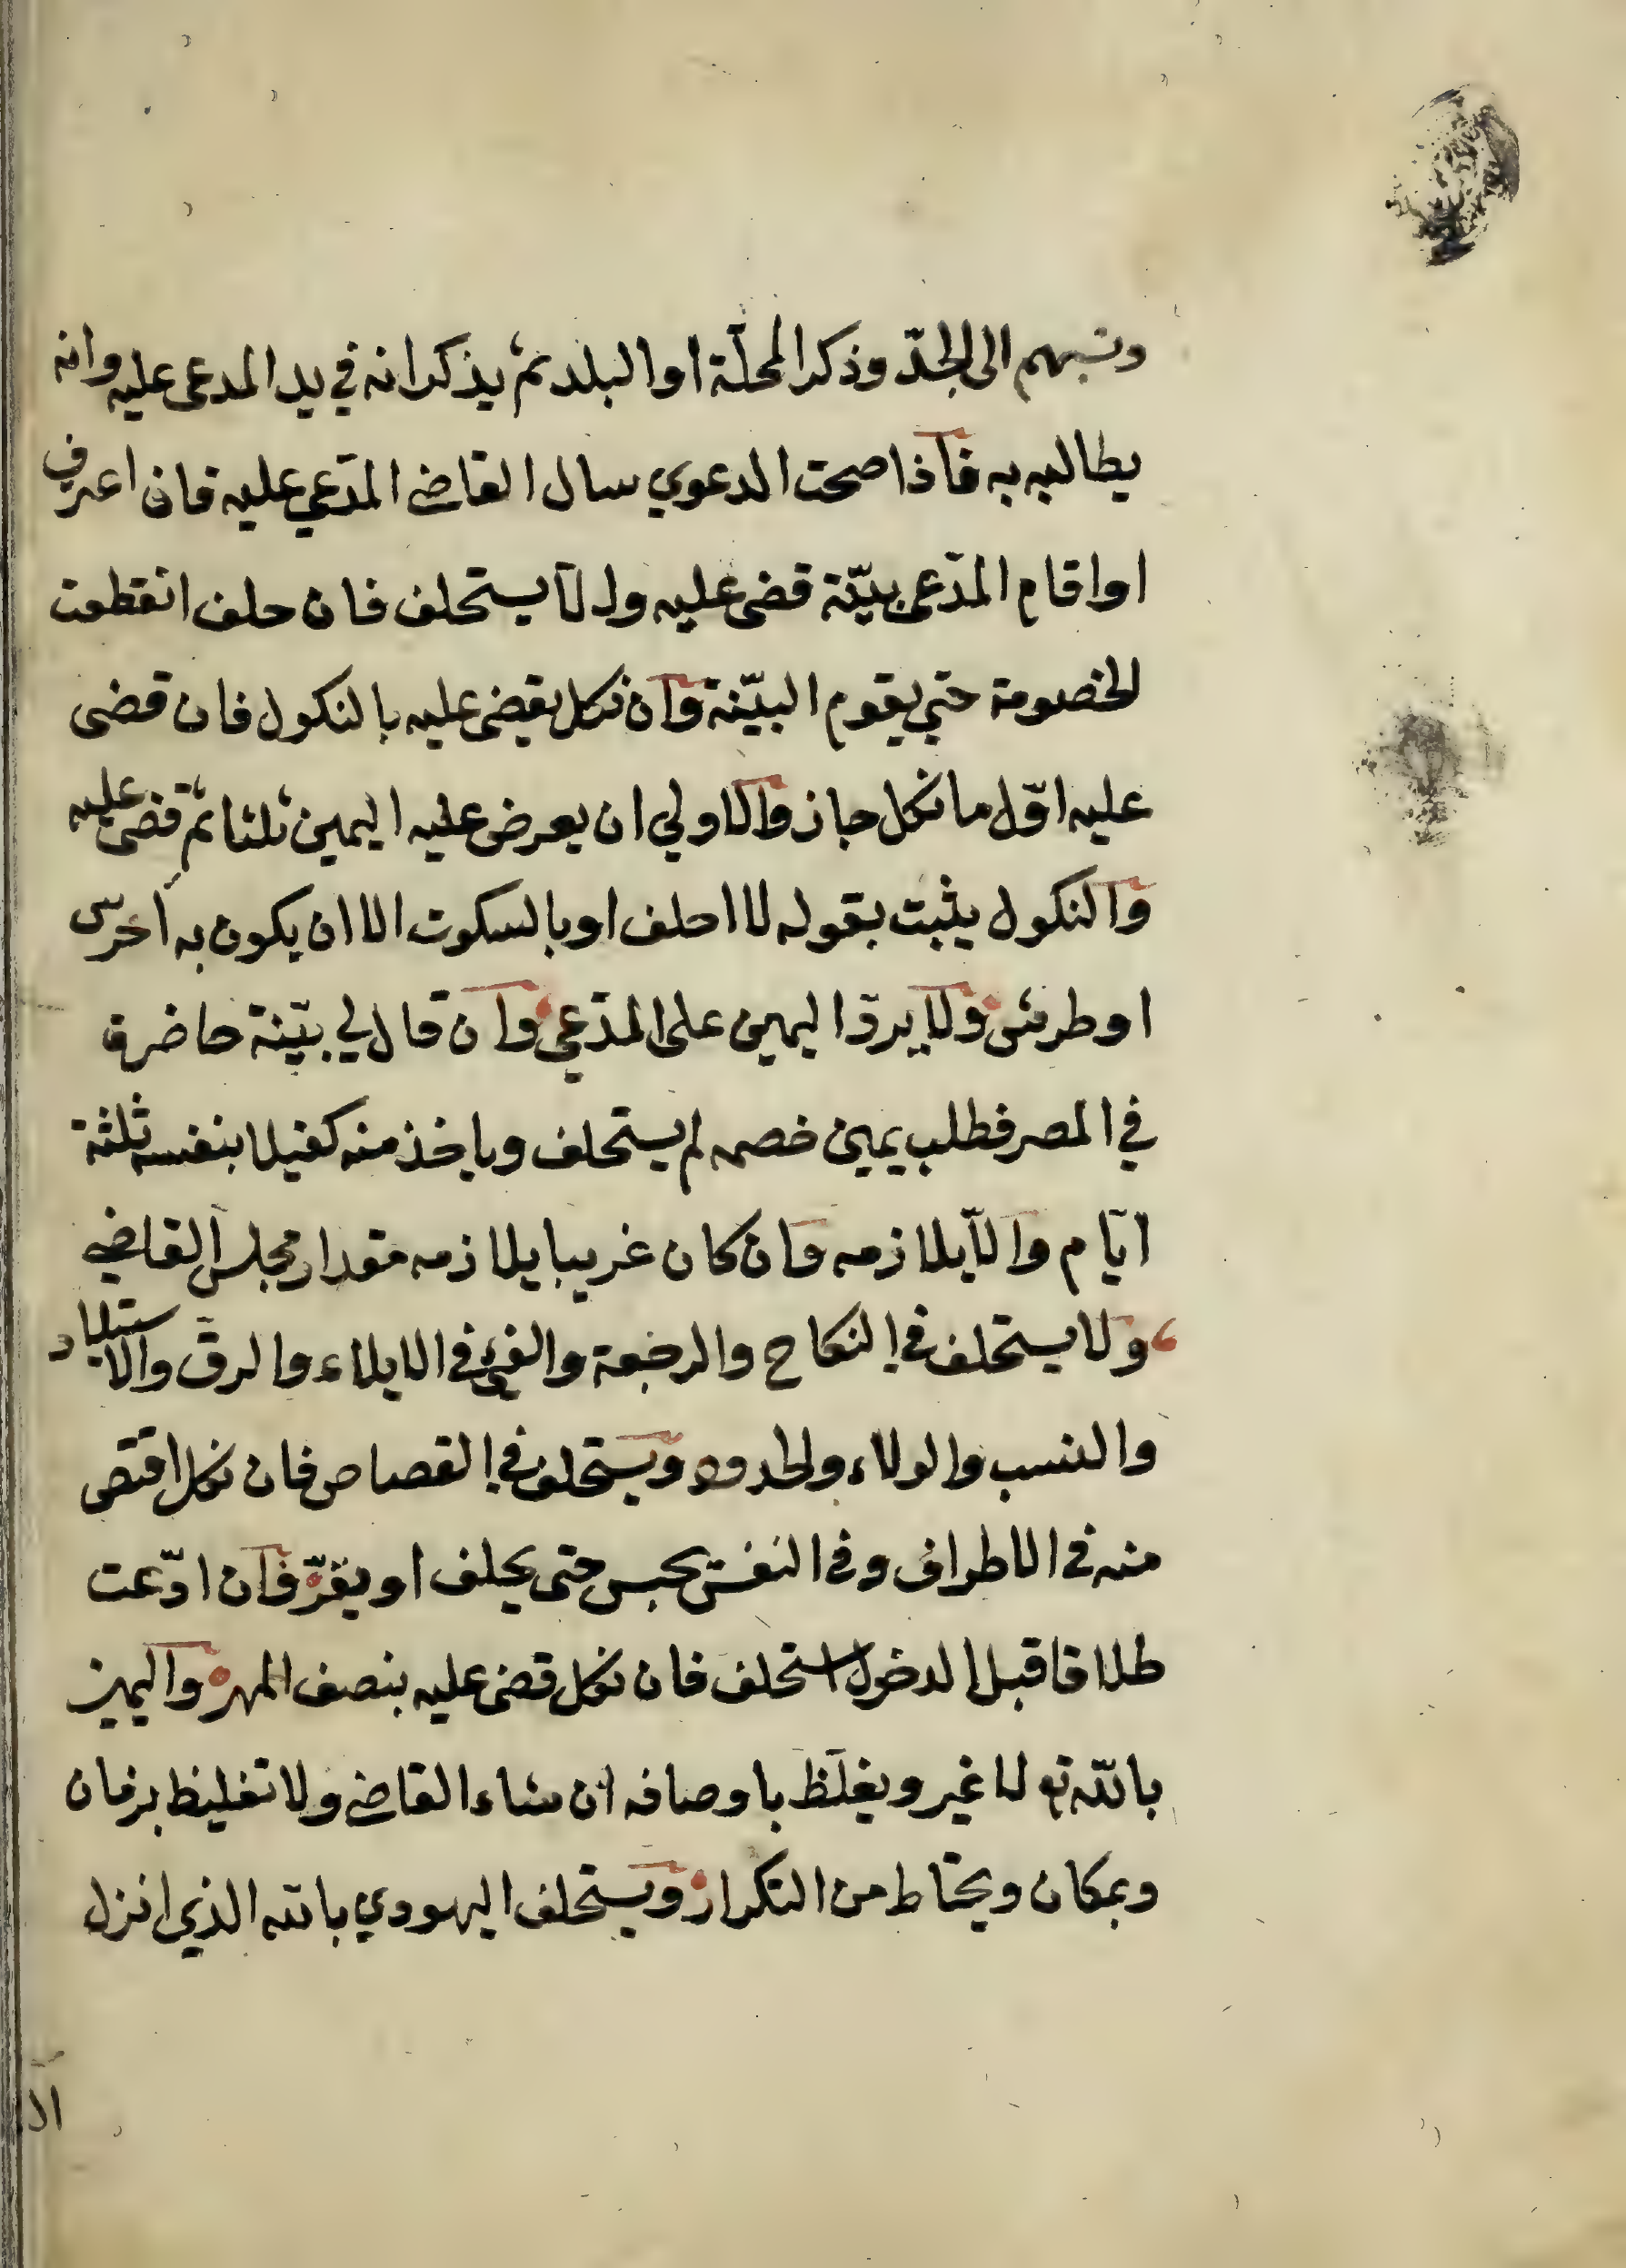 ونسبهم الى الجدّ وذكر المحلّة او البلد ثم يذكر انه في يد المدعى عليه وانه
يطالبه به فاذا صحت الدعوي سال القاضي المدّعي عليه فان اعترف
او اقام المدّعى بيّنة قضى عليه والّا يستحلف فان حلف انقطعت
الخصومة حتي يقوم البيّنة وان نكل يقضى عليه بالنكول فان قضى
عليه اوّل ما نكل جاز والاولي ان يعرض عليه اليمين ثلثا ثم قضى عليه
والنكول يثبت بقوله لا احلف او بالسكوت الا ان يكون به اخرس
او طرش ولا يردّ اليمين على المدّعي وان قال لي بيّنة حاضرة
في المصر فطلب يمين خصمه لم يستحلف وياخذ منه كفيلا بنفسه ثلثة
ايّام والّا يلازمه وان كان غريبا يلازمه مقدار مجلس القاضي
ولا يستحلف في النكاح والرجعة والفئ في الايلاء والرق والاستيلاد
والنسب والولاء والحدود ويستحلف في القصاص فان نكل اقتص
منه في الاطراف وفي النفس يحبس حتى يحلف او يقرّ فان ادّعت
طلاقا قبل الدخول استحلف فان نكل قضى عليه بنصف المهر واليمين
بالله تع لا غير ويغلّظ باوصافه ان شاء القاضي ولا تغليظ بزمان
وبمكان ويحتاط من التكرار ويستحلف اليهودي بالله الذي انزل